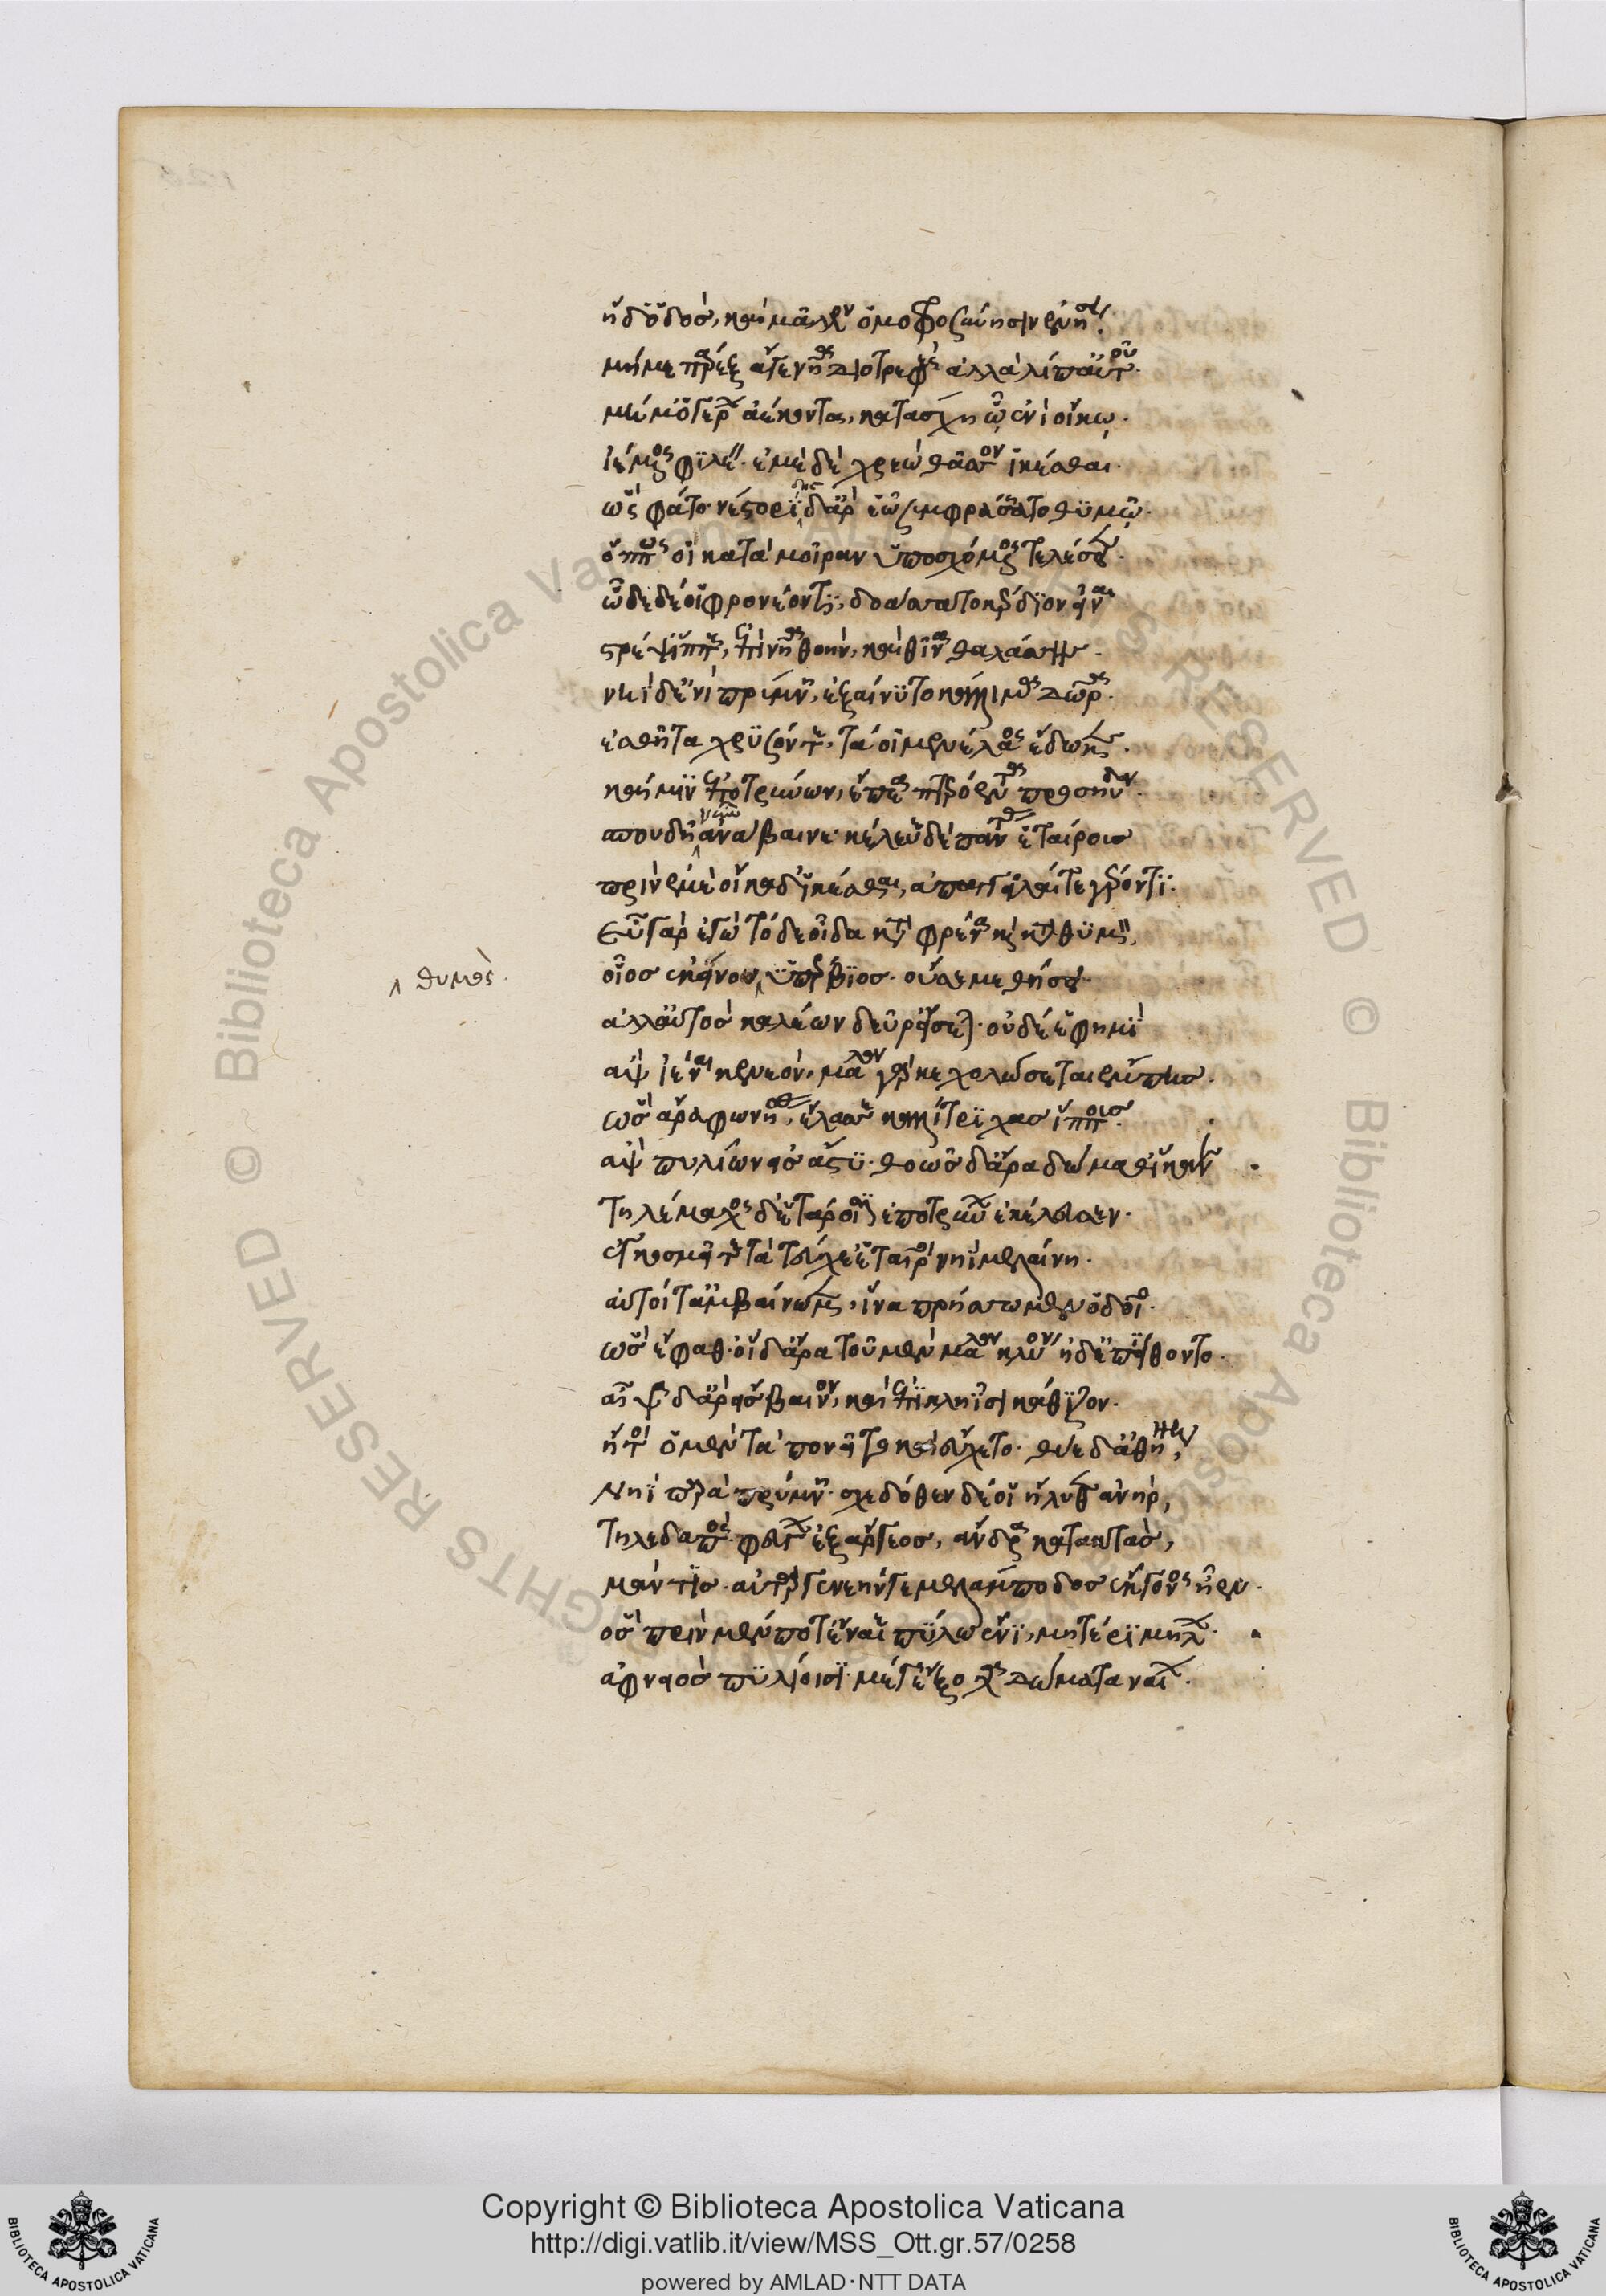 ἥδ' ὁδὸς, καὶ μᾶλλον ὁμοφροσύνησιν ἐνήσει.
μή με παρὲξ ἄγε νῆα διοτρεφὲς ἀλλὰ λίπ' αὐτοῦ.
μή μ' ὁ γέρων ἀέκοντα, κατάσχη ὧ ἐνὶ οἴκω.
ἱέμενος φιλέειν. ἐμὲ δὲ χρεὼ θᾶσσον ἱκέσθαι.
ὣς φάτο νεστορίδης δ' ἄρ' ἑῶ συμφράσσατο θυμῶ.
ὅππως οἱ κατὰ μοῖραν ὑποσχόμενος τελέσειεν.
ὧδε δέ οἱ φρονέοντι, δοάσσατο κέρδιον εἶναι
στρέψ' ἵππους, ἐπὶ νῆα θοὴν, καὶ θῖνα θαλάσσης.
νηὶ δ' ἐνὶ πρύμνη, ἐξαίνυτο κάλλιμα δῶρα.
ἐσθῆτα χρυσόν τε, τά οἱ μενέλαος ἔδωκεν.
καί μιν ἐποτρύνων, ἔπεα πτερόεντα προσηύδα.
σπουδῆ νῦν ἀνάβαινε κέλευε δὲ πάντας ἑταίρους
πρὶν ἐμὲ οἴκαδ' ἱκέσθαι, ἀπαγγεῖλαί τε γέροντι.
Εὖ γὰρ ἐγὼ τόδε οἶδα κατὰ φρένα καὶ κατὰ θυμόν,
οἷος ἐκείνου ὑπέρβιος. οὔ σε μεθήσει.
θυμὸς.
ἀλλ' αὐτὸς καλέων δεῦρ' εἴσεται. οὐδέ ἕ φημὶ
ἂψ ἰέναι κενεόν. μάλα γὰρ κεχολώσεται ἔμπης.
ὣς ἄρα φωνήσας, ἔλασεν καλλίτριχας ἵππους.
ἂψ πυλίων εἰς ἄστυ. θοῶς δ' ἄρα δώμαθ' ἵκανεν
Τηλέμαχος δ' ἑτάροισιν ἐποτρύνων ἐκέλευσεν.
ἐγκοσμεῖτε τὰ τεύχε' ἑταῖροι νηῒ μελαίνη.
αὐτοί τ' ἀμβαίνωμεν, ἵνα πρήσσωμεν ὁδοῖο.
ὣς ἔφαθ' οἱ δ' ἄρα τοῦ μὲν μάλα κλύον ἠδὲ πίθοντο.
αἶψα δ' ἄρ' εἴσβαινον, καὶ ἐπὶ κληῖσι κάθιζον.
ἤτοι ὁ μὲν τὰ πονεῖτο καὶ εὔχετο. θῦε δ' ἀθήνη,
Νηῒ παρὰ πρύμνη. σχεδόθεν δέ οἱ ἤλυθεν ἀνὴρ,
Τηλεδαπὸς. φεύγων ἐξ ἄργεος, ἄνδρα κατακτὰς,
μάντις. ἀτὰρ γενεήν γε μελάμποδος ἔκγονος ἦεν.
ὃς πρὶν μέν ποτ' ἔναιε πύλω ἔνι, μητέρι μήλων.
ἀφνειὸς πυλίοισι μέγ' ἔξοχα δώματα ναίων.
Copyright © Biblioteca Apostolica Vaticana
http://digi.vatlib.it/view/MSS_Ott.gr.57/0258
powered by AMLAD·NTT DATA